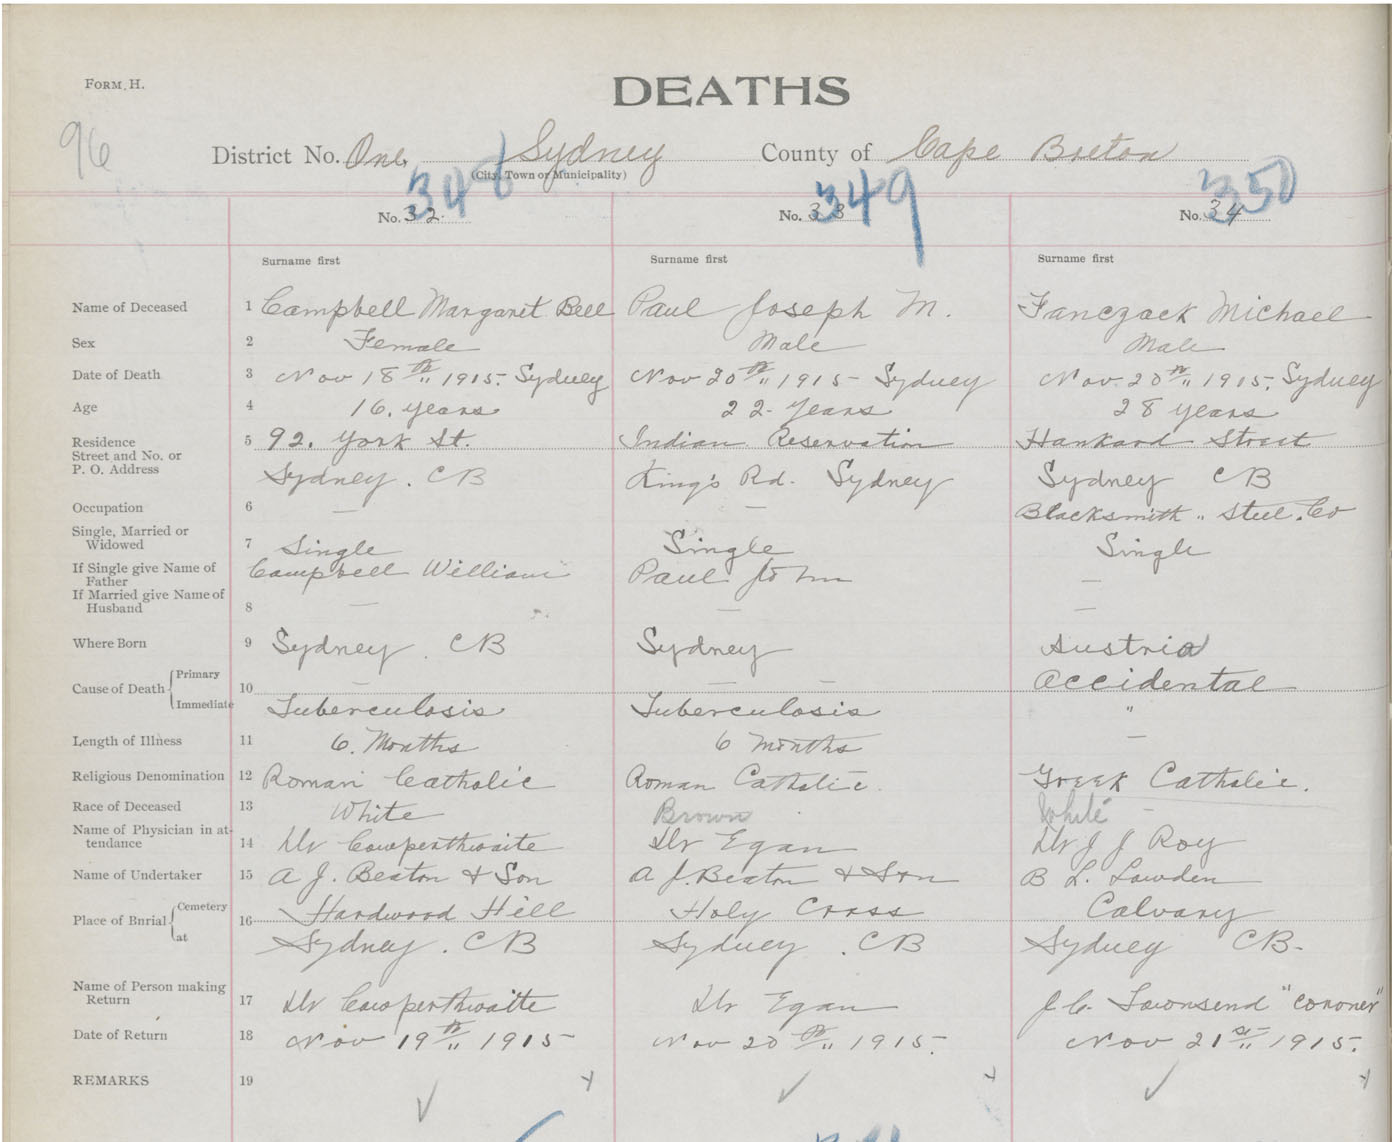 FORM, H.
DEATHS
96
District No. One, Sydney County of Cape Breton
(City, Town or Municipality)
348 349 350
No. 32. No. 33 No. 34
Surname first Surname first Surname first
Name of Deceased 1 Campbell Margaret Bell Paul Joseph M. Fanczack Michael
Sex 2 Female Male Male
Date of Death 3 Nov 18th 1915. Sydney Nov 20th 1915 - Sydney Nov. 20th 1915. Sydney
Age 4 16. years 22 - Years 28 years
Residence 5 92. York St. Indian Reservation Hankard Street
Street and No. or
P. O. Address Sydney. CB King's Rd. Sydney Sydney CB
Occupation 6 — — Blacksmith " Steel. Co
Single, Married or
Widowed 7 Single Single Single
If Single give Name of
Father Campbell William Paul John —
If Married give Name of
Husband 8 — — —
Where Born 9 Sydney. CB Sydney Austria
Cause of Death Primary 10 — — — Accidental
Immediate Tuberculosis Tuberculosis "
Length of Illness 11 6. Months 6 months —
Religious Denomination 12 Roman Catholic Roman Catholic. Greek Catholic.
Race of Deceased 13 White Brown White -
Name of Physician in at-
tendance 14 Dr Cowperthwaite Dr Egan Dr J J Roy
Name of Undertaker 15 A J. Beaton & Son A J. Beaton & Son B L. Lowden
Place of Bnrial Cemetery 16 Hardwood Hill Holy Cross Calvary
at Sydney. CB Sydney. CB Sydney CB-
Name of Person making
Return 17 Dr Cowperthwaite Dr Egan J. C. Townsend "coroner"
Date of Return 18 Nov 19th 1915 - Nov 20th 1915. Nov 21st 1915.
REMARKS 19